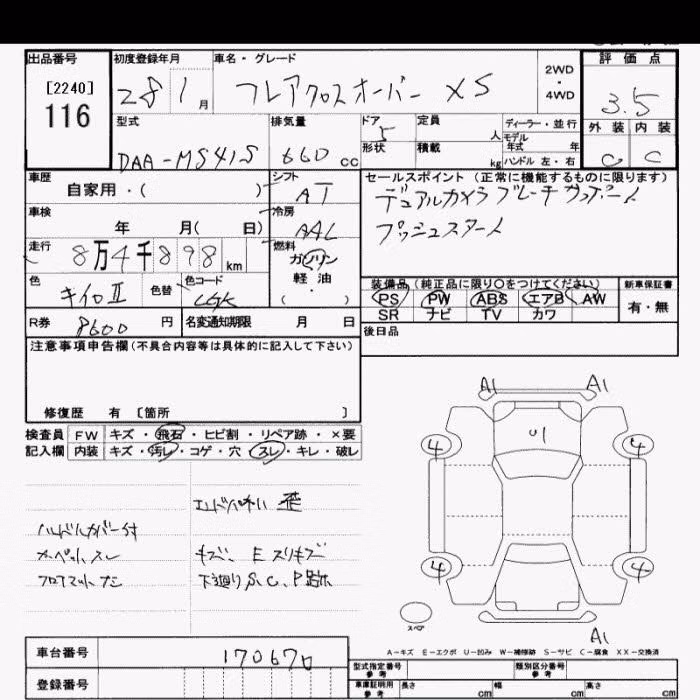 出品番号
[2240]
116
初度登録年月
28 1 月
車名・グレード
フレアクロスオーバー XS
2WD
・
4WD
評価点
3.5
外装 内装
C C
型式
DAA-MS41S
排気量
660 cc
ドア 5
形状
定員 人
積載 kg
ディーラー・並行
モデル年式 年
ハンドル 左・右
車歴
自家用・( )
シフト
AT
セールスポイント (正常に機能するものに限ります)
デュアルカメラブレーキサポート
プッシュスタート
車検
年 月( 日)
冷房
AAC
走行
8万4千898 km
燃料
ガソリン
軽油
( ・ )
色
キイロⅡ
色替
色コード
装備品 (純正品に限り〇をつけてください)
PS PW ABS エアB AW
SR ナビ TV カワ
新車保証書
有・無
R券
8600 円
名変通知期限 月 日
後日品
注意事項申告欄(不具合内容等は具体的に記入して下さい)
修復歴 有 〔箇所 〕
検査員 FW キズ・飛石・ヒビ割・リペア跡・×要
記入欄 内装 キズ・汚レ・コゲ・穴・スレ・キレ・破レ
歪
ハンドルカバー付
カーペットスレ
キズ、Eスリキズ
フロアマットナシ
下廻りS、C、P跡
A1 A1
U1
4 4
4 4
スペア
A1
A-キズ E-エクボ U-凹み W-補修跡 S-サビ C-腐食 XX-交換済
車台番号
170670
登録番号
型式指定番号
参考
類別区分番号
参考
車庫証明用
参考
長さ cm 幅 cm 高さ cm